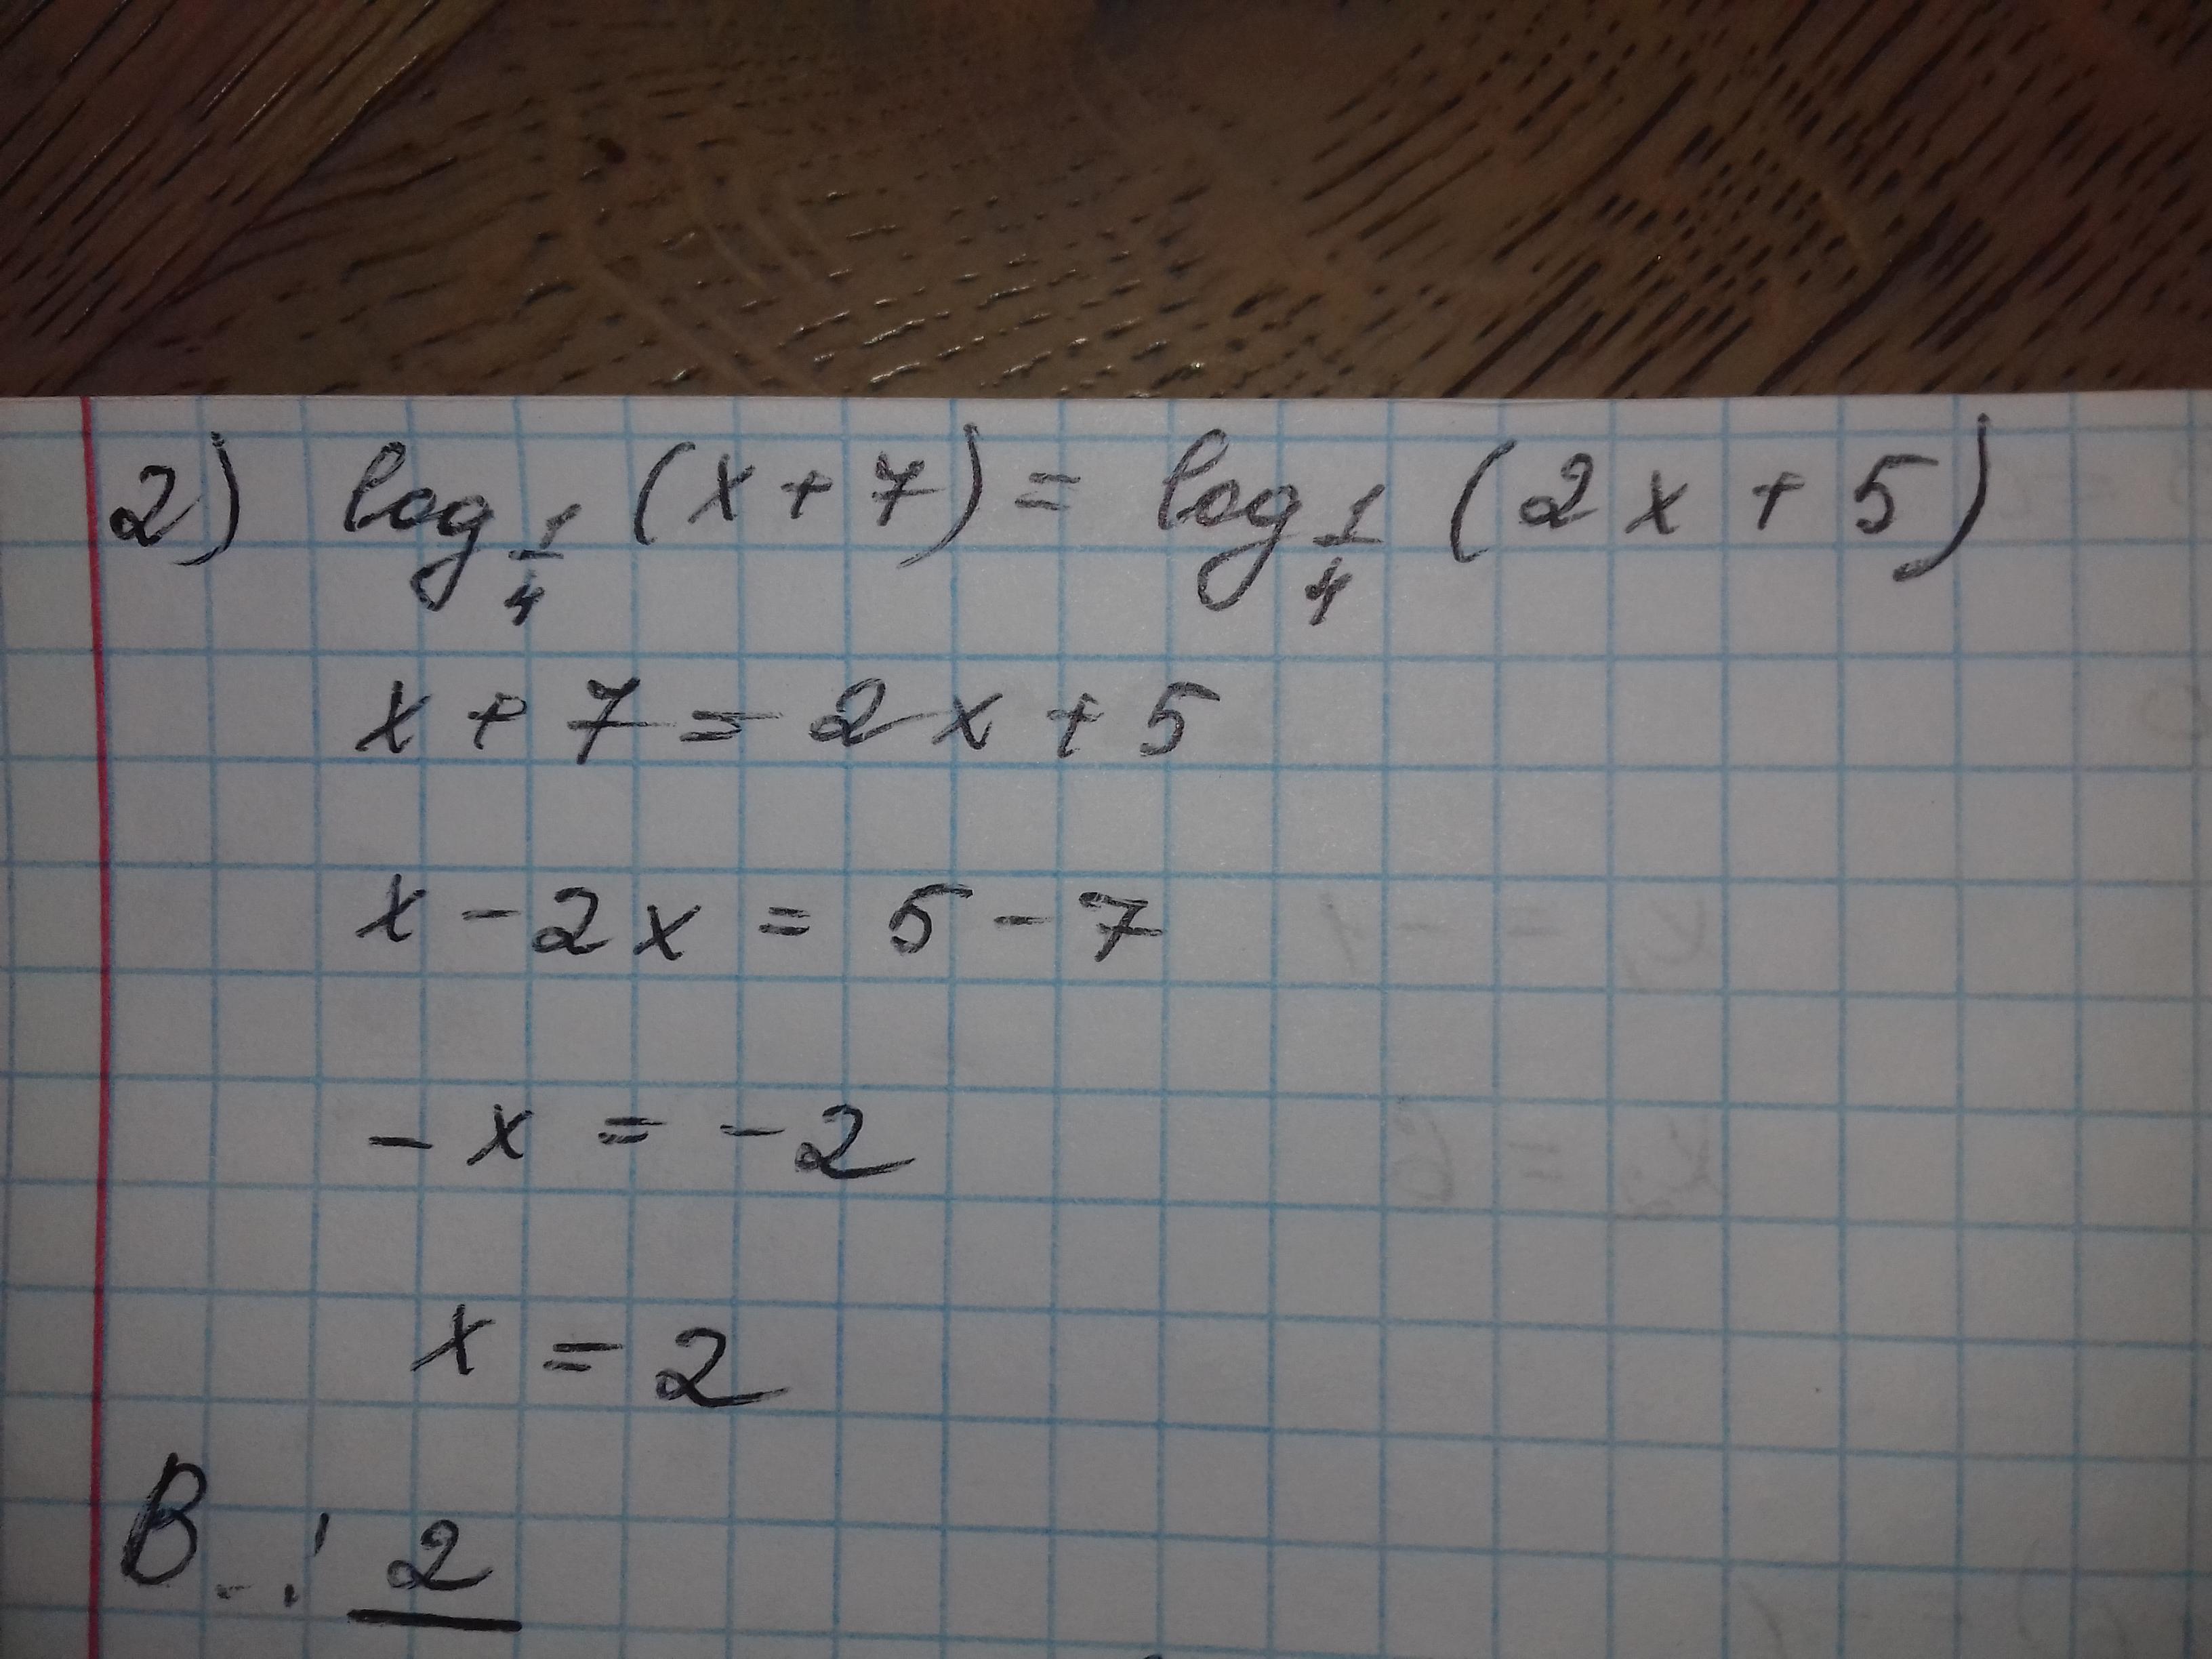 2) log 1/4 (x+7) = log 1/4 (2x+5)
x+7=2x+5
x-2x=5-7
-x=-2
x=2
В-: 2